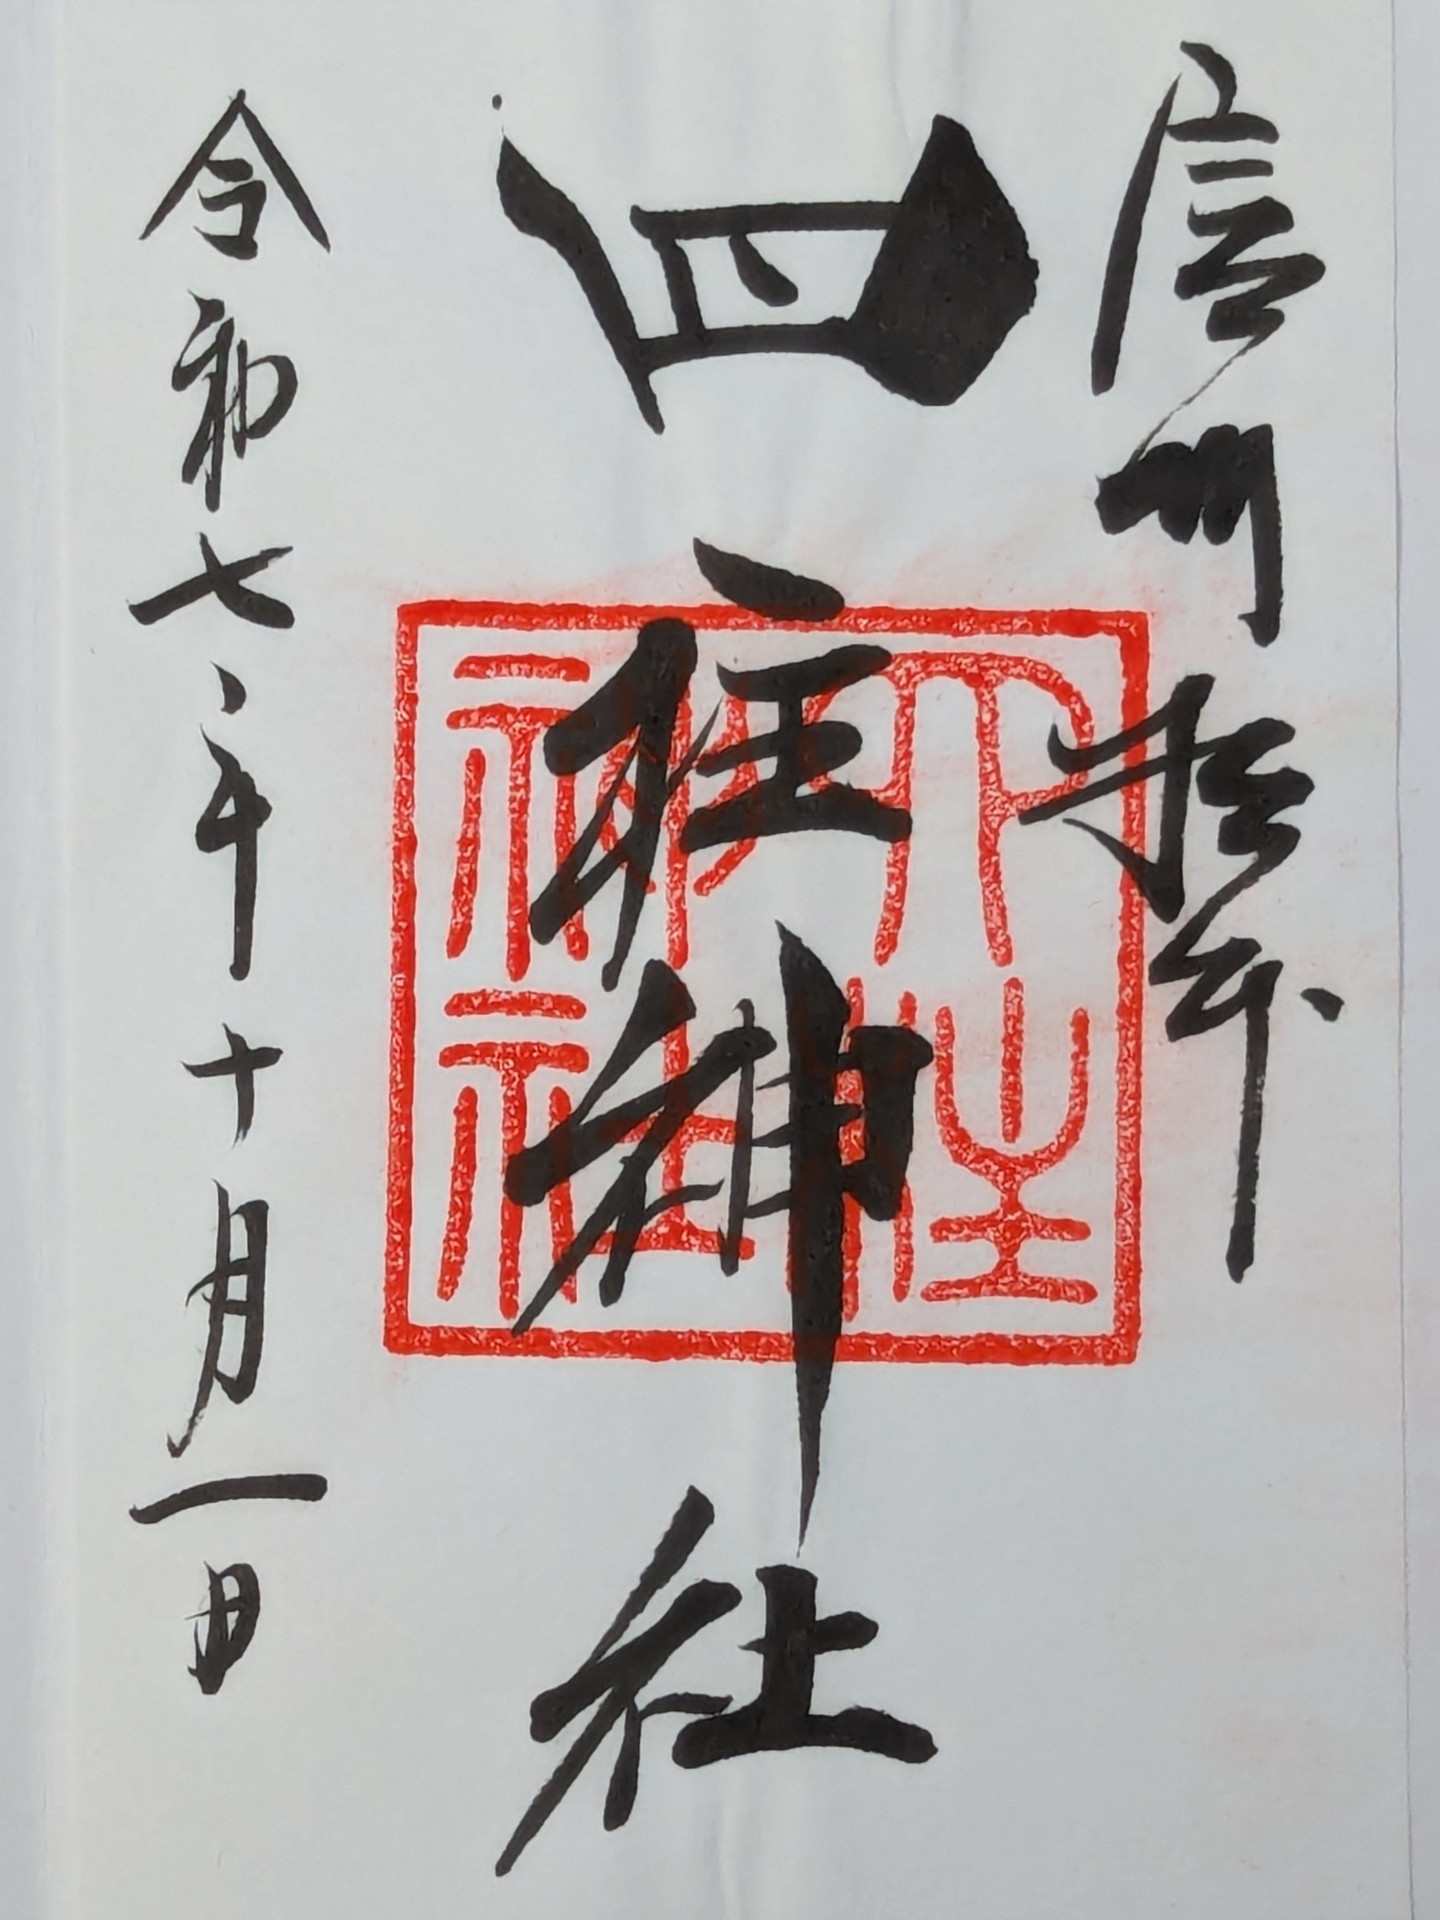 信州松本
四柱神社
令和七年十月一日
四柱
神社